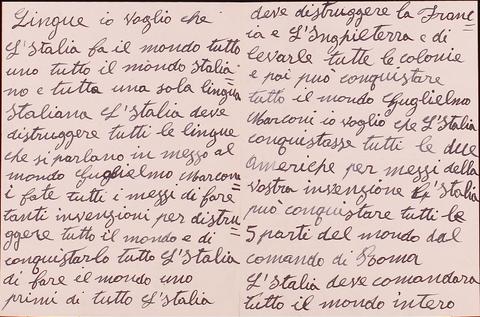 Lingue io voglio che
L'Italia fa il mondo tutto
uno tutto il mondo Italia=
no e tutta una sola lingua
Italiana L'Italia deve
distruggere tutti le lingue
che si parlano in mezzo al
mondo Guglielmo Marcon=
i fate tutti i mezzi di fare
tanti invenzioni per distru=
ggere tutto il mondo e di
conquistarlo tutto L'Italia
di fare il mondo uno
primi di tutto L'Italia
deve distruggere la Franc=
ia e L'Inghilterra e di
levarle tutte le colonie
e poi può conquistare
tutto il mondo Guglielmo
Marconi io voglio che L'Italia
conquistasse tutti le due
Americhe per mezzi della
vostra invenzione L'Italia
può conquistare tutti le
5 parti del mondo dal
comando di Roma
L'Italia deve comandara
tutto il mondo intero